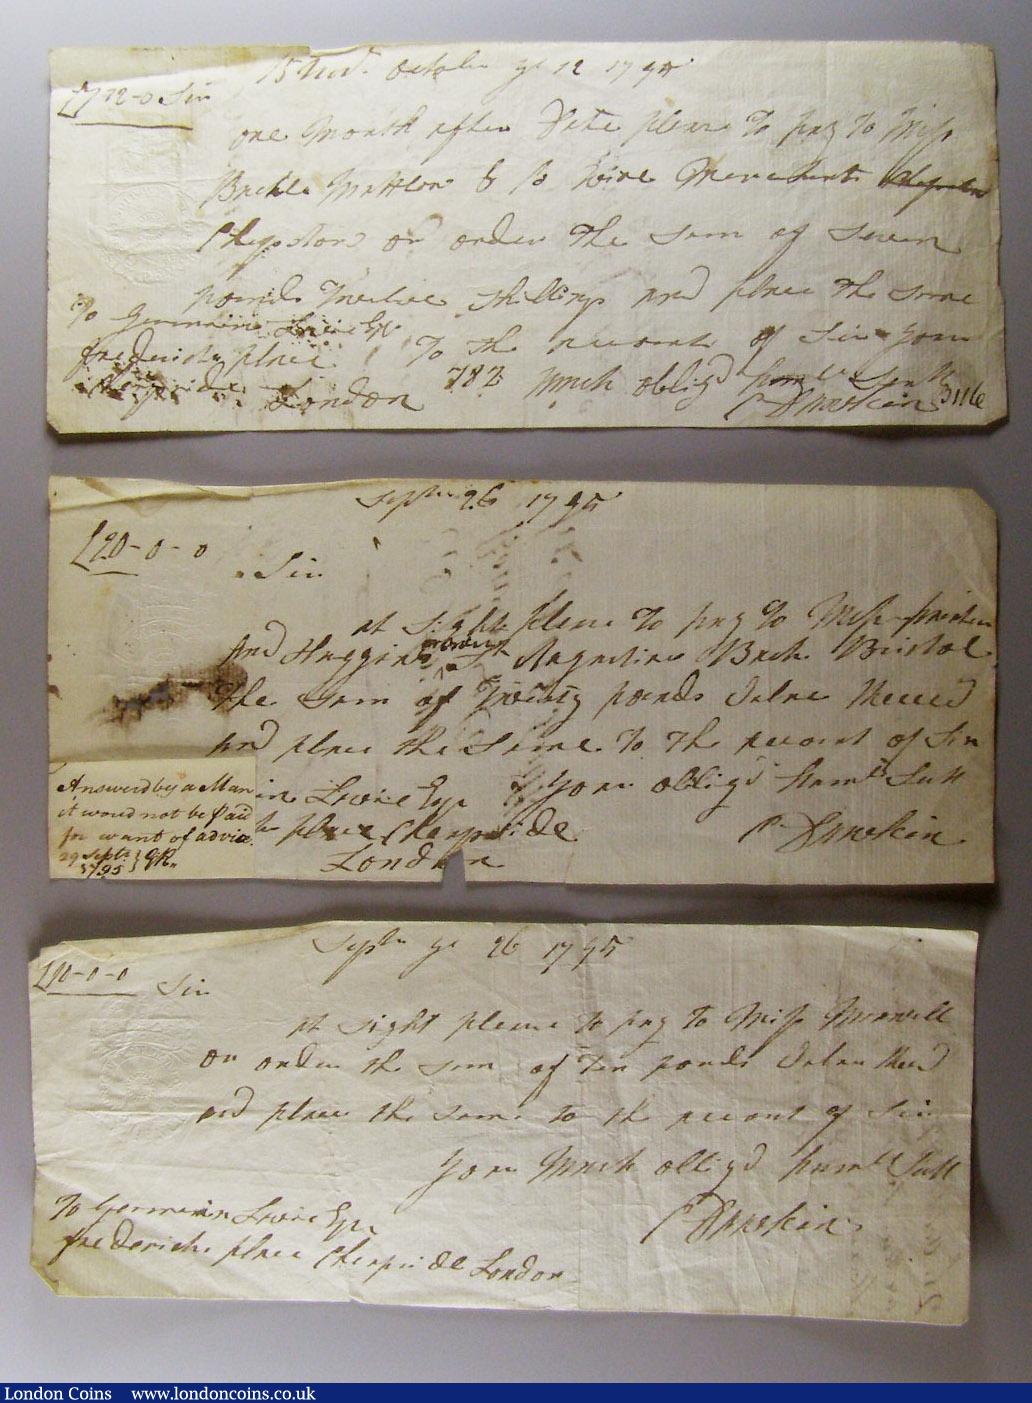 15 Nov. October ye 12 1795
£7-12-0 Sir
one Month after Date please To pay To Mess
Buckle & Co Wine Merchants
Chepstow or order The Sum of Seven
pounds Twelve Shillings and place The Same
To The account of Sir your
782 Much oblig'd humle Sert
To Germain Lavie Esqr
Fredericks place
Cheapside London
C Erskine 3116
Septr 26 1795
£20-0-0
Sir
at Sight please To pay To Mess
And Huggins or order St Augustins Back Bristol
The Sum of Twenty pounds Value Receed
and place the Same To The account of Sir
Your obblig'd Humle Sert
in Lavie Esqr
place Cheapside
London
C Erskine
Answerd by a Man
it woud not be Paid
for want of advice
29 Septr 1795 } GR.
Septr ye 26 1795
£10-0-0
Sir
at Sight please to pay to Miss Morvell
or order the Sum of Ten pounds Value Received
and place the Same to the account of Sir
Your Much obblig'd humle Sert
C Erskine
To Germain Lavie Esqr
Fredericks place Cheapside London
London Coins www.londoncoins.co.uk